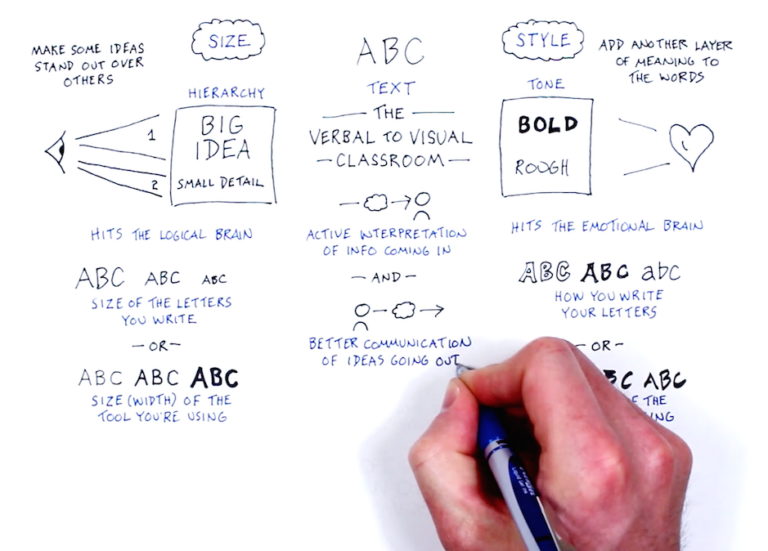 MAKE SOME IDEAS
STAND OUT OVER
OTHERS
SIZE
HIERARCHY
1
BIG
IDEA
2
SMALL DETAIL
HITS THE LOGICAL BRAIN
ABC ABC ABC
SIZE OF THE LETTERS
YOU WRITE
-OR-
ABC ABC ABC
SIZE (WIDTH) OF THE
TOOL YOU'RE USING
ABC
TEXT
THE
VERBAL TO VISUAL
CLASSROOM
ACTIVE INTERPRETATION
OF INFO COMING IN
-AND-
BETTER COMMUNICATION
OF IDEAS GOING OUT
STYLE
TONE
ADD ANOTHER LAYER
OF MEANING TO
THE WORDS
BOLD
ROUGH
HITS THE EMOTIONAL BRAIN
ABC ABC abc
HOW YOU WRITE
YOUR LETTERS
-OR-
BC ABC
OF THE